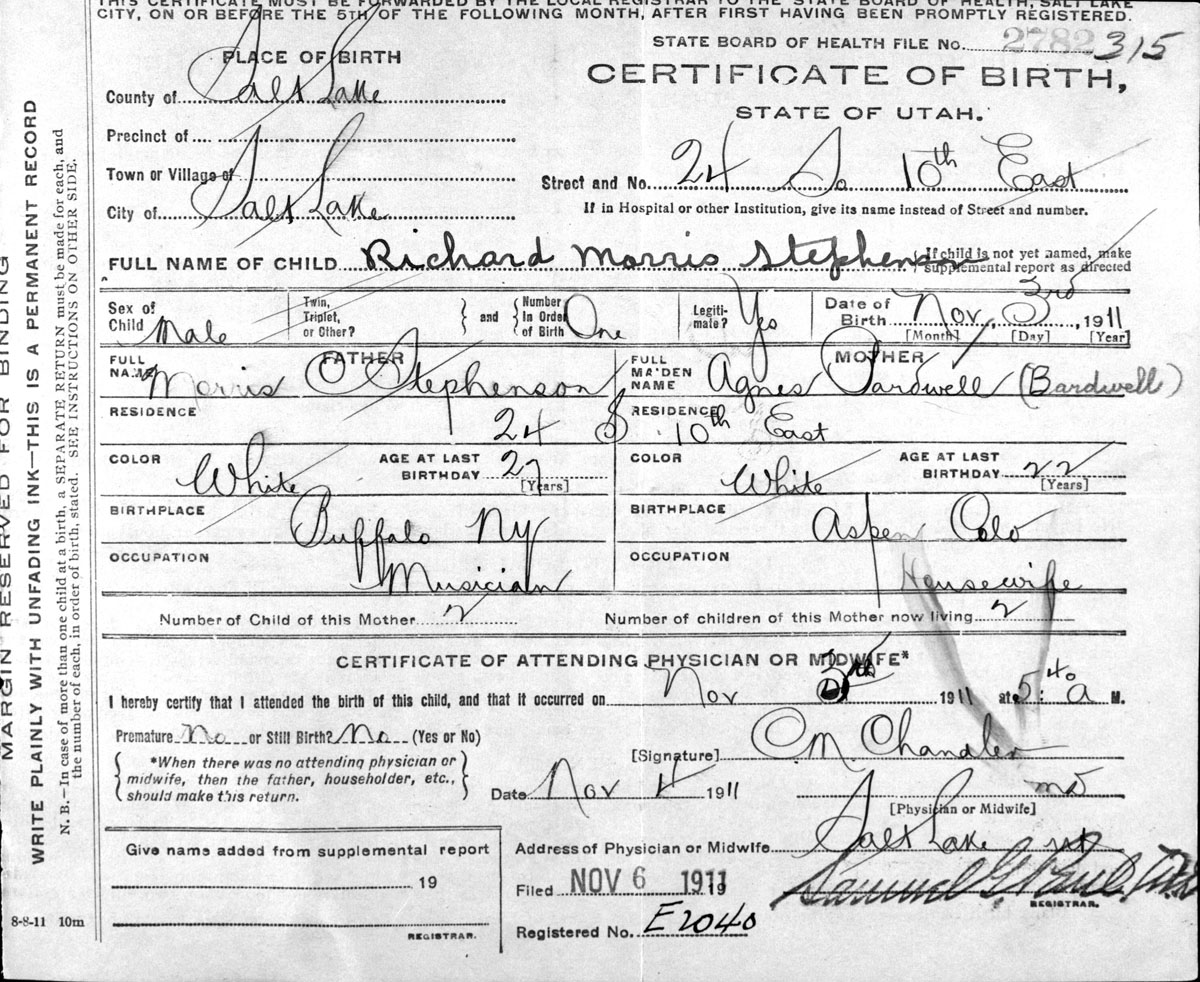 THIS CERTIFICATE MUST BE FORWARDED BY THE LOCAL REGISTRAR TO THE STATE BOARD OF HEALTH, SALT LAKE
CITY, ON OR BEFORE THE 5TH OF THE FOLLOWING MONTH, AFTER FIRST HAVING BEEN PROMPTLY REGISTERED.
STATE BOARD OF HEALTH FILE No. 2782 315
PLACE OF BIRTH
CERTIFICATE OF BIRTH,
STATE OF UTAH.
County of Salt Lake
Precinct of
Town or Village of
City of Salt Lake
Street and No. 24 So 10th East
If in Hospital or other Institution, give its name instead of Street and number.
FULL NAME OF CHILD Richard Morris Stephenson
If child is not yet named, make
supplemental report as directed
Sex of Child Male
Twin, Triplet, or Other?
and
Number In Order of Birth One
Legitimate? Yes
Date of Birth Nov 3rd, 1911
[Month] [Day] [Year]
FATHER
FULL NAME Morris O Stephenson
MOTHER
FULL MAIDEN NAME Agnes Pardwell (Bardwell)
RESIDENCE 24 S
RESIDENCE 10th East
COLOR White
AGE AT LAST BIRTHDAY 27
[Years]
COLOR White
AGE AT LAST BIRTHDAY 22
[Years]
BIRTHPLACE Buffalo NY
BIRTHPLACE Aspen Colo
OCCUPATION Musician
OCCUPATION Housewife
Number of Child of this Mother 2
Number of children of this Mother now living 2
CERTIFICATE OF ATTENDING PHYSICIAN OR MIDWIFE*
I hereby certify that I attended the birth of this child, and that it occurred on Nov 3rd 1911 at 5:40 a M.
Premature No or Still Birth? No (Yes or No)
*When there was no attending physician or
midwife, then the father, householder, etc.,
should make this return.
[Signature] C M Chandler
Date Nov 4 1911
MD
[Physician or Midwife]
Give name added from supplemental report
19
REGISTRAR.
Address of Physician or Midwife Salt Lake Ut
Filed NOV 6 1911 19
Samuel G Paul
REGISTRAR.
Registered No. E2040
8-8-11 10m
MARGIN RESERVED FOR BINDING
WRITE PLAINLY WITH UNFADING INK—THIS IS A PERMANENT RECORD
N. B.—In case of more than one child at a birth, a SEPARATE RETURN must be made for each, and
the number of each, in order of birth, stated. SEE INSTRUCTIONS ON OTHER SIDE.